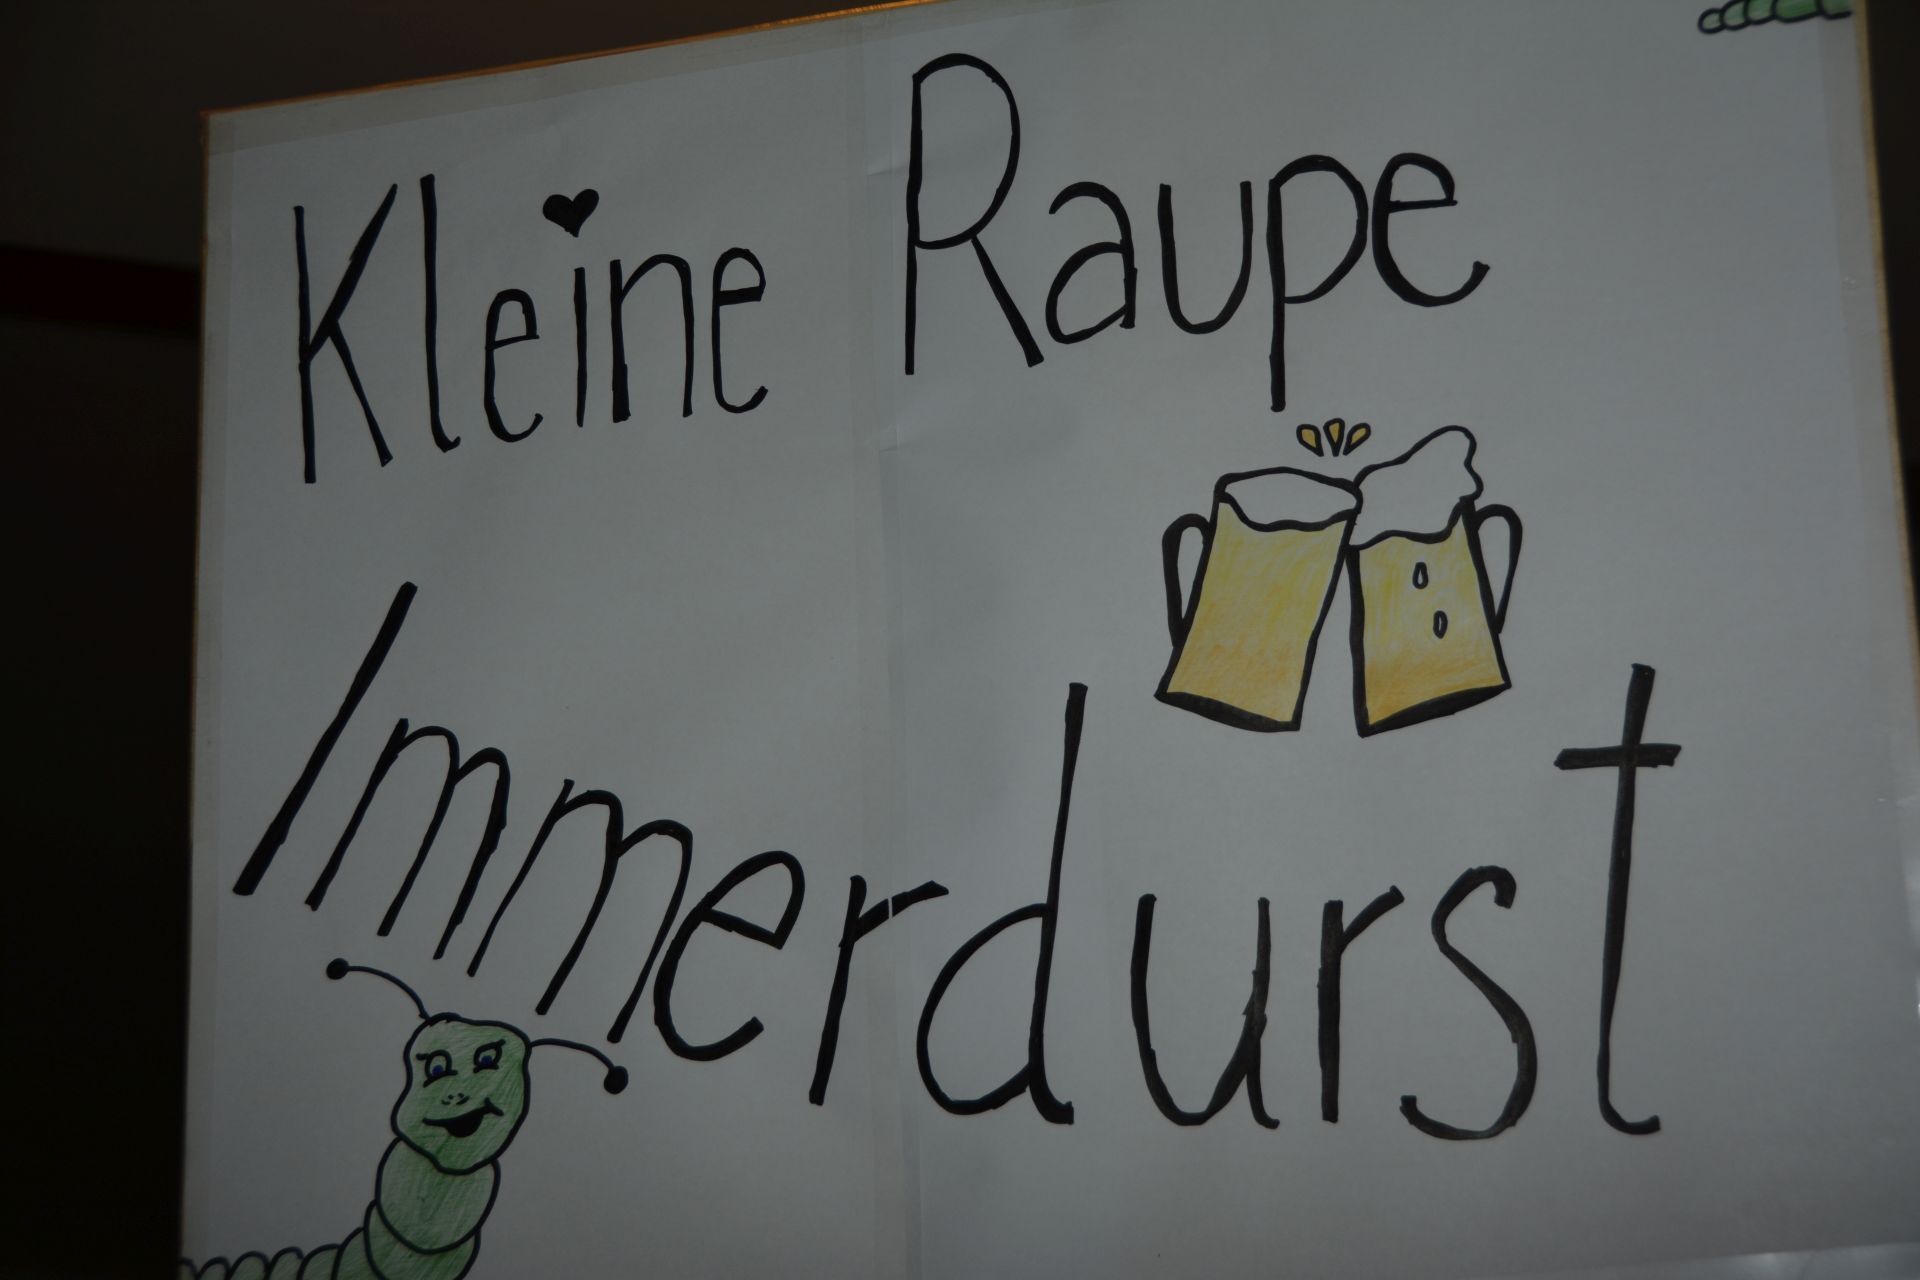 Kleine Raupe
Immerdurst